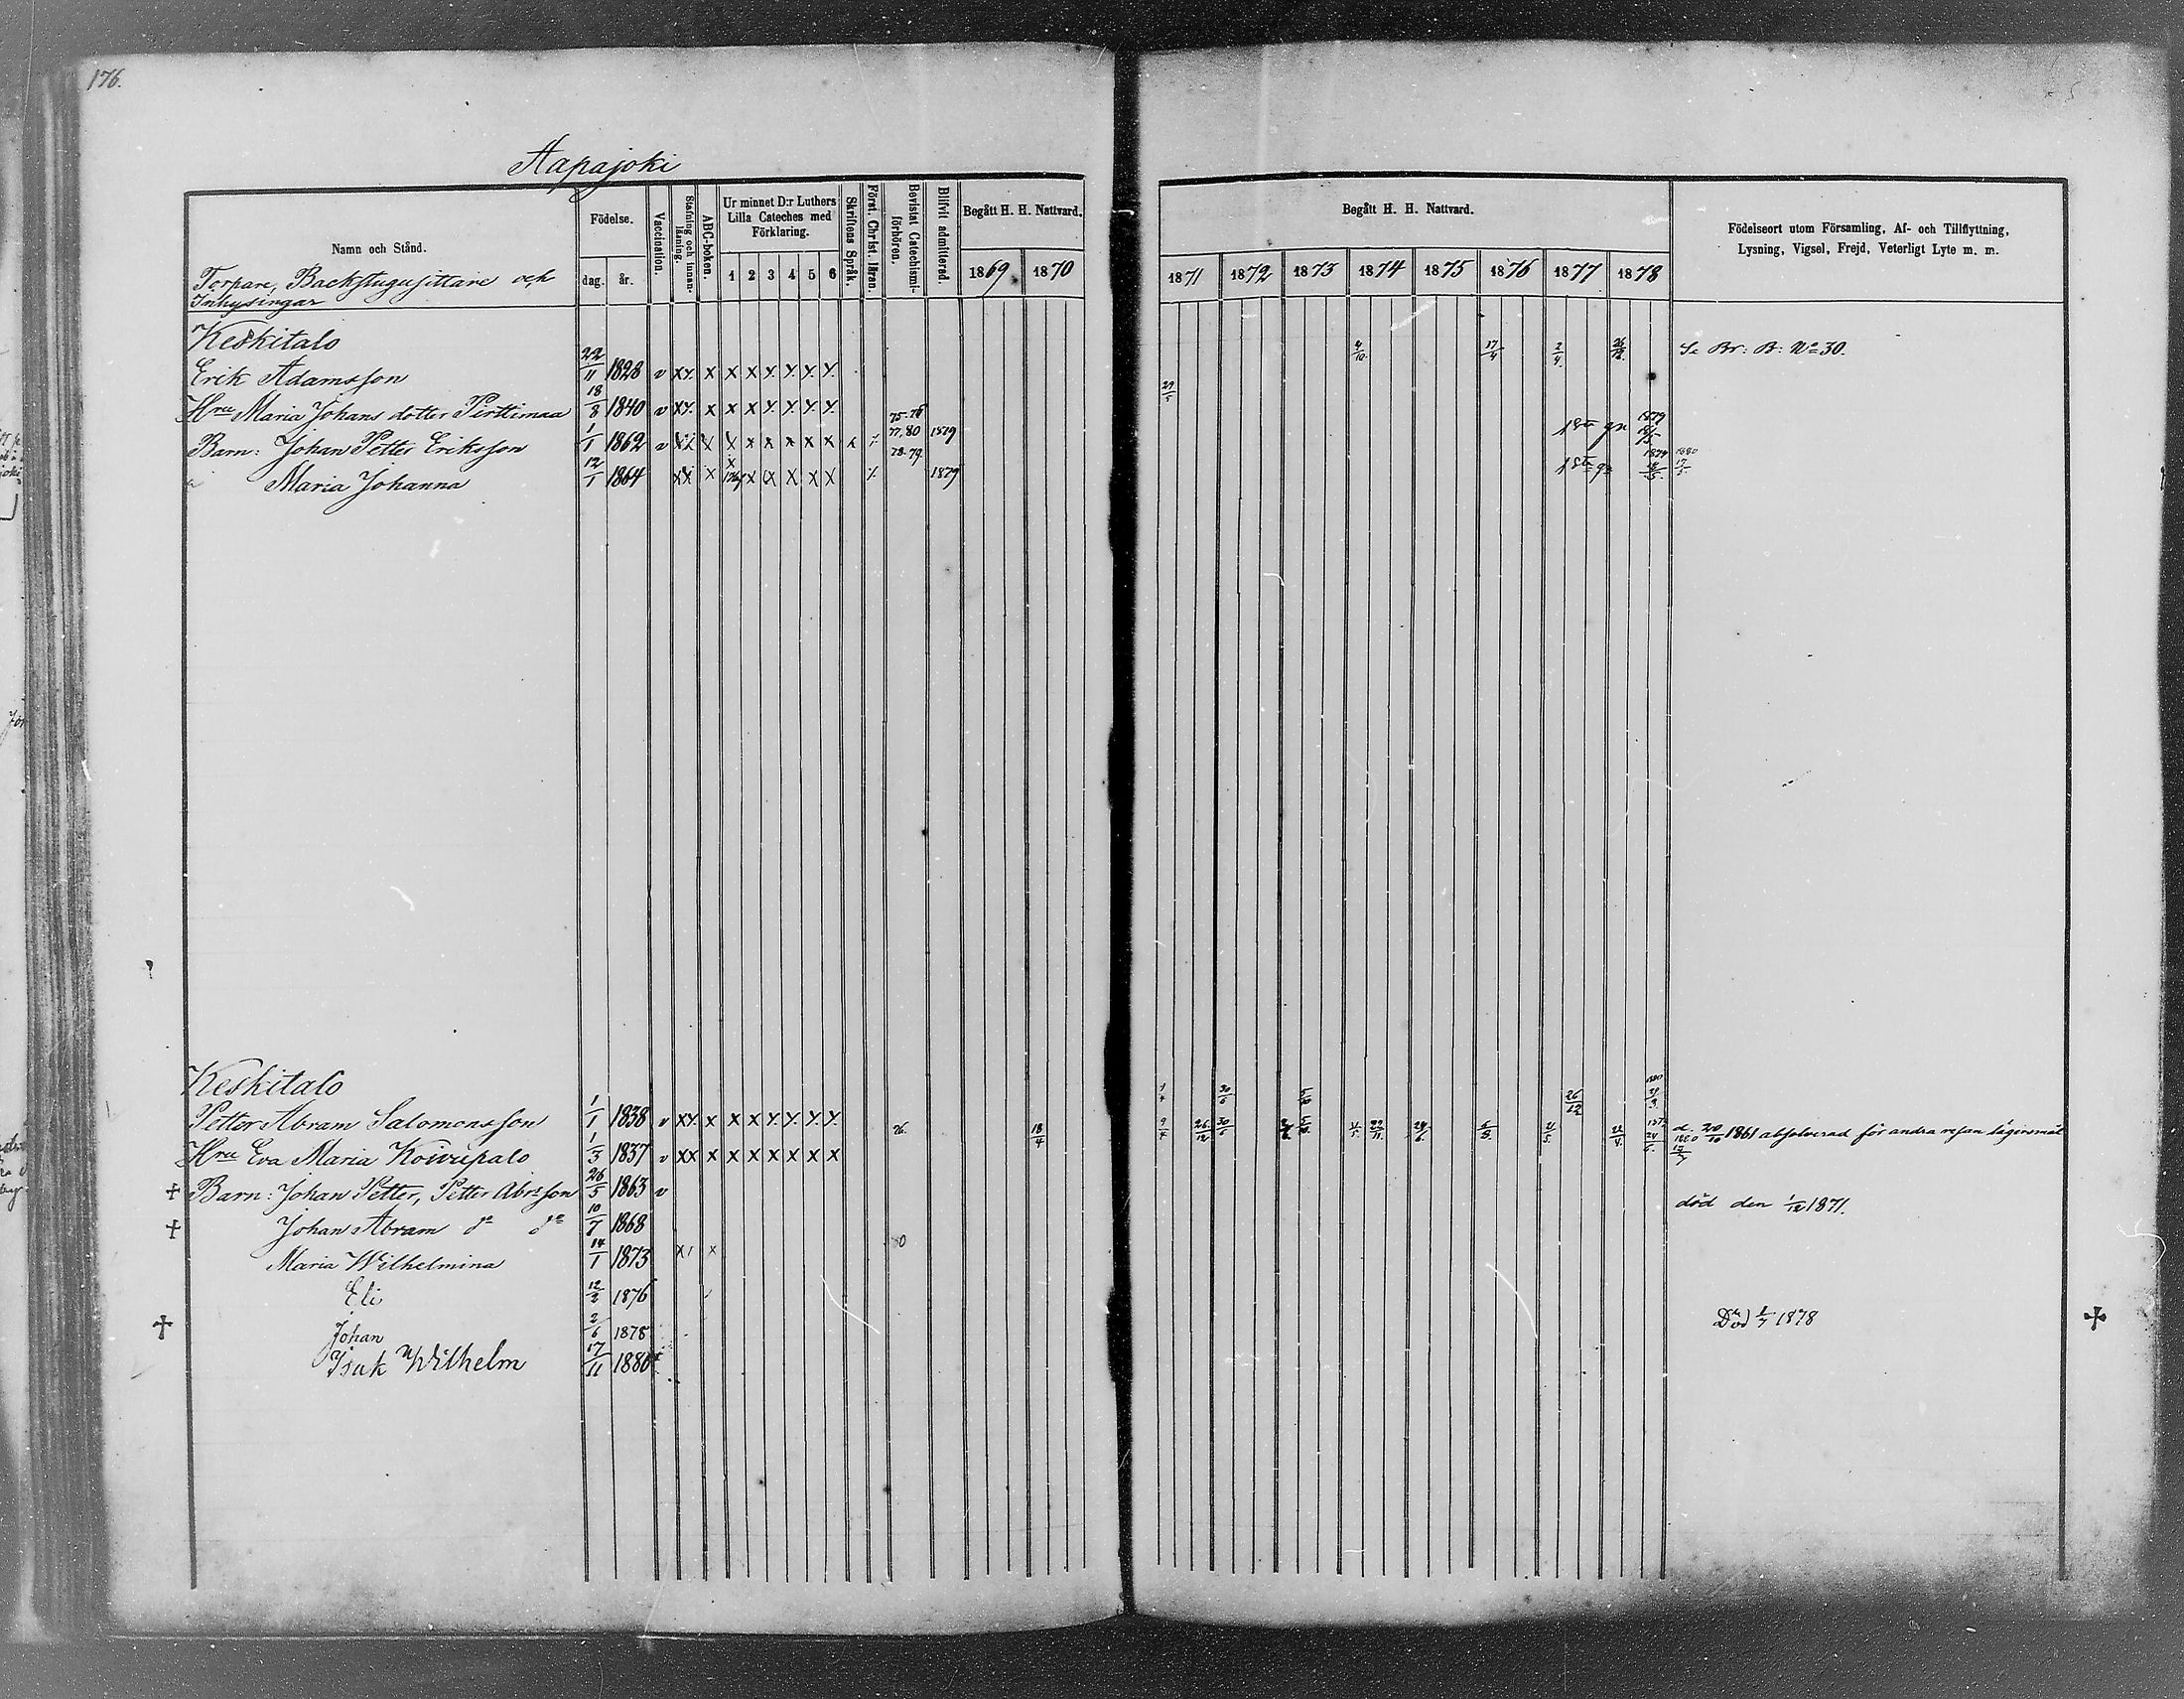 176.
Aapajoki
Namn och Stånd.
Torpare, Backstugusittare och
Inhysingar
Födelse.
dag. år.
Vaccination.
Stafning och innanläsning.
ABC-boken.
Ur minnet D:r Luthers
Lilla Cateches med
Förklaring.
1 2 3 4 5 6
Skriftens Språk.
Först. Christ. läran.
Bevistat Catechismi-
förhören.
Blifvit admitterad.
Begått H. H. Nattvard.
1869 1870
Begått H. H. Nattvard.
1871 1872 1873 1874 1875 1876 1877 1878
Födelseort utom Församling, Af- och Tillflyttning,
Lysning, Vigsel, Frejd, Veterligt Lyte m. m.
Keskitalo
Erik Adamsson 22/11 1828 v x y. x x x y. y. y. y. 4/10 17/4 2/4 Se Br: B: No 30.
Hru Maria Johans dotter Perttimaa 18/8 1840 v x y. x x x y. y. y. y. 29/5
Barn: Johan Petter Eriksson 1/1 1862 v x x x x x x x x 75.76 77,80 1879 1879
Maria Johanna 12/1 1864 x x x x x x x x 78.79. 1879 1879 1880
Keskitalo
Petter Abram Salomonsson 1/1 1838 v x y. x x x y. y. y. y. 30/6 26/12 1880
Hru Eva Maria Koivupalo 1/3 1837 v x x x x x x x x x 76. 18/4 9/4 26/12 30/6 22/11 24/6 d. 20/10 1861 absolverad för andra resan lägersmål
† Barn: Johan Petter, Petter Abrsson 26/5 1863 v död den 1/12 1871.
† Johan Abram do do 10/7 1868
Maria Wilhelmina 14/1 1873 x x
Eli 12/2 1876
† Johan 2/6 1878 Död 1878 †
Isak Wilhelm 17/11 1880